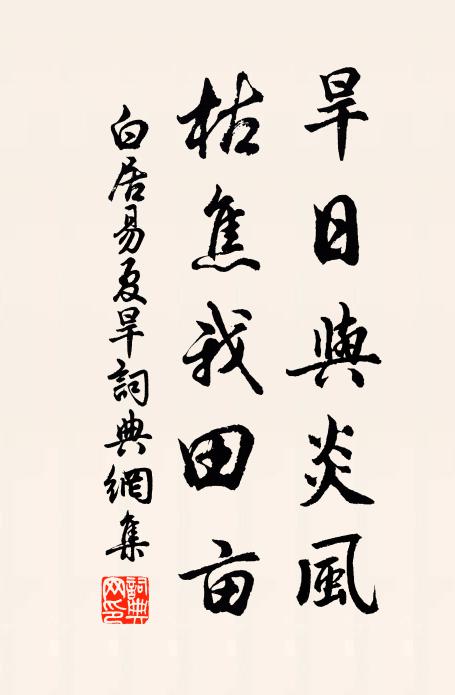 旱日與炎風
枯焦我田亩
白居易夏旱詞典網集
詞典网印